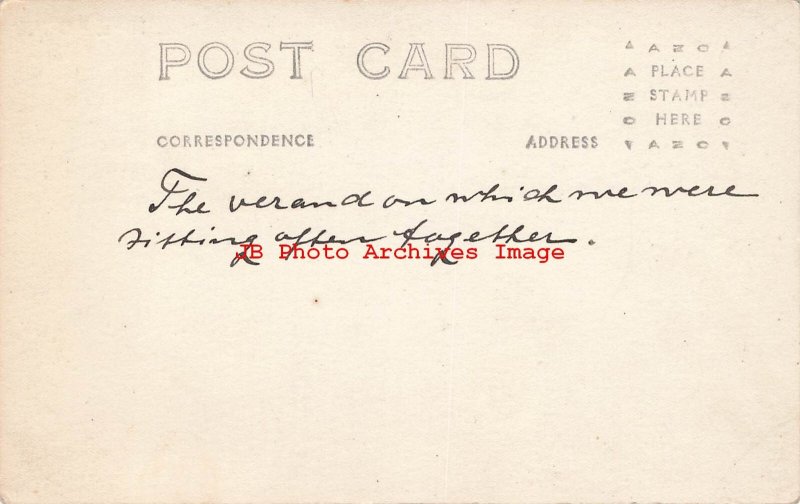 POST CARD
AZO
PLACE
STAMP
HERE
AZO
CORRESPONDENCE
ADDRESS
The verand on which we were
sitting often together.
JB Photo Archives Image